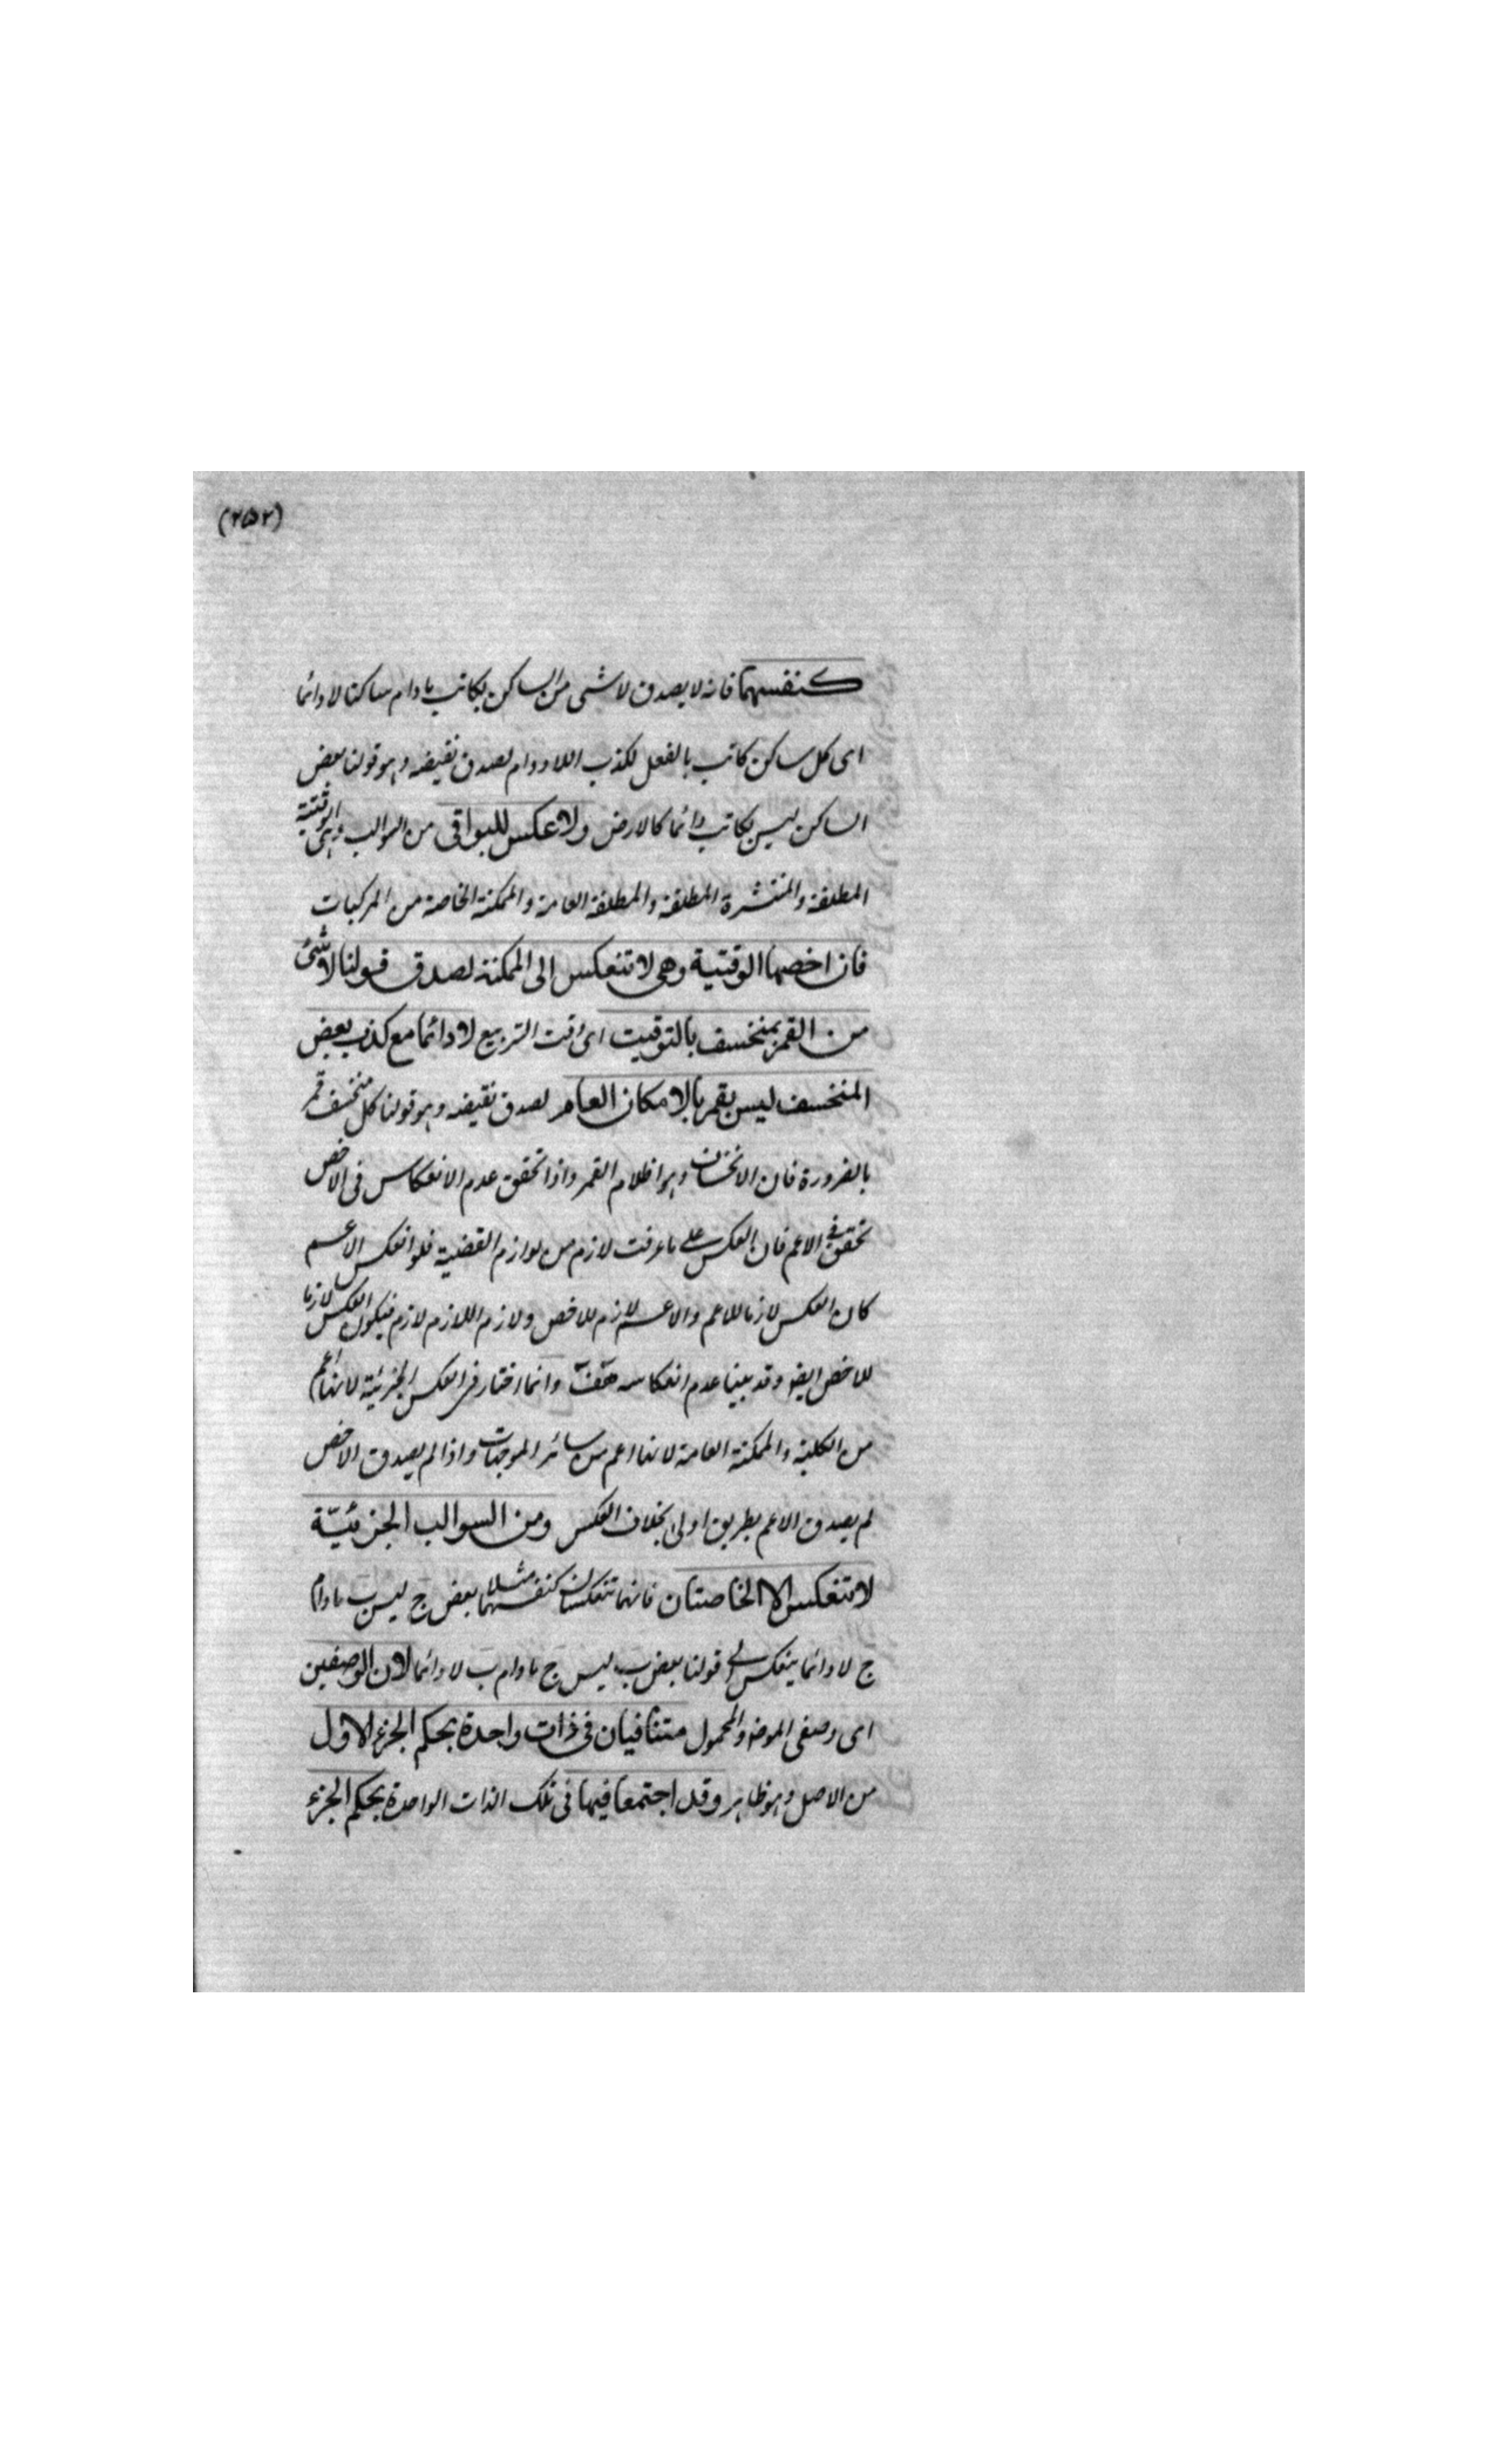 (٢٥٢)
كنفسهما فانه لا يصدق لا شئ من الساكن بكاتب مادام ساكنا لا دائما
اى كل ساكن كاتب بالفعل لكذب اللادوام لصدق نقيضه وهو قولنا بعض
الساكن ليس بكاتب دائما كالارض ولا عكس للبواقى من السوالب وهى الوقتية
المطلقة والمنتشرة المطلقة والمطلقة العامة والممكنة الخاصة من المركبات
فان اخصها الوقتية وهى لا تنعكس الى الممكنة لصدق قولنا لا شئ
من القمر بمنخسف بالتوقيت اى وقت التربيع لا دائما مع كذب بعض
المنخسف ليس بقمر بالامكان العام لصدق نقيضه وهو قولنا كل منخسف قمر
بالضرورة فان الانخساف وهو اظلام القمر واذا تحقق عدم الانعكاس فى الاخص
تحقق فى الاعم فان العكس على ما عرفت لازم من لوازم القضية فلو انعكس الاعم
كان العكس لازما للاعم والاعم لازم للاخص ولازم اللازم لازم فيكون العكس لازما
للاخص ايضا وقد بينا عدم انعكاسه هف وانما اختار فى العكس الجزئية لانها اعم
من الكلية والممكنة العامة لانها اعم من سائر الموجهات واذا لم يصدق الاخص
لم يصدق الاعم بطريق اولى بخلاف العكس ومن السوالب الجزئيّة
لا تنعكس الا الخاصتان فانهما تنعكسان كنفسهما مثلا بعض ج ليس ب مادام
ج لا دائما ينعكس الى قولنا بعض ب ليس ج مادام ب لا دائما لان الوصفين
اى وصفى الموضوع والمحمول متنافيان فى ذات واحدة بحكم الجزء الاول
من الاصل وهو ظاهر وقد اجتمعا فيها فى تلك الذات الواحدة بحكم الجزء